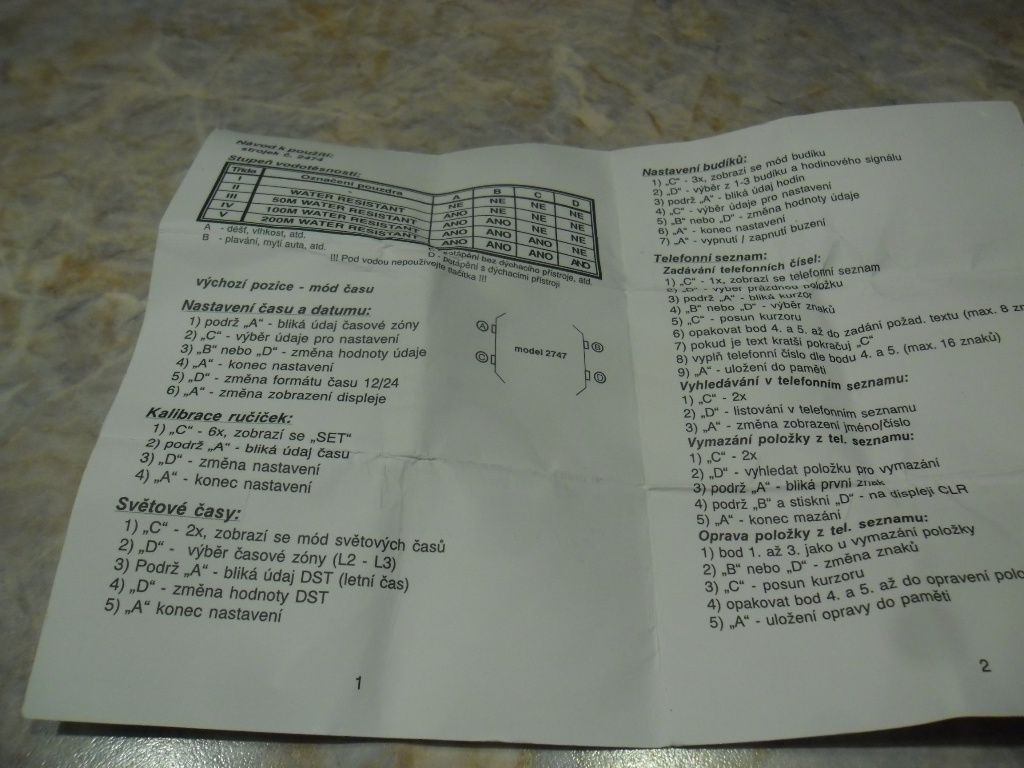 Návod k použití:
strojek č. 2474
Stupeň vodotěsnosti:
Třída Označení pouzdra A B C D
I NE NE NE NE
II WATER RESISTANT ANO NE NE NE
III 50M WATER RESISTANT ANO ANO NE NE
IV 100M WATER RESISTANT ANO ANO ANO NE
V 200M WATER RESISTANT ANO ANO ANO ANO
A - déšť, vlhkost, atd.
B - plavání, mytí auta, atd.
potápění bez dýchacího přístroje, atd.
D - potápění s dýchacími přístroji
!!! Pod vodou nepoužívejte tlačítka !!!
výchozí pozice - mód času
Nastavení času a datumu:
1) podrž „A“ - bliká údaj časové zóny
2) „C“ - výběr údaje pro nastavení
3) „B“ nebo „D“ - změna hodnoty údaje
4) „A“ - konec nastavení
5) „D“ - změna formátu času 12/24
6) „A“ - změna zobrazení displeje
A
B
C
D
model 2747
Kalibrace ručiček:
1) „C“ - 6x, zobrazí se „SET“
2) podrž „A“ - bliká údaj času
3) „D“ - změna nastavení
4) „A“ - konec nastavení
Světové časy:
1) „C“ - 2x, zobrazí se mód světových časů
2) „D“ - výběr časové zóny (L2 - L3)
3) Podrž „A“ - bliká údaj DST (letní čas)
4) „D“ - změna hodnoty DST
5) „A“ konec nastavení
1
Nastavení budíků:
1) „C“ - 3x, zobrazí se mód budíku
2) „D“ - výběr z 1-3 budíku a hodinového signálu
3) podrž „A“ - bliká údaj hodin
4) „C“ - výběr údaje pro nastavení
5) „B“ nebo „D“ - změna hodnoty údaje
6) „A“ - konec nastavení
7) „A“ - vypnutí / zapnutí buzení
Telefonní seznam:
Zadávání telefonních čísel:
1) „C“ - 1x, zobrazí se telefonní seznam
2) „D“ - výběr prázdnou položku
3) podrž „A“ - bliká kurzor
4) „B“ nebo „D“ - výběr znaků
5) „C“ - posun kurzoru
6) opakovat bod 4. a 5. až do zadání požad. textu (max. 8
7) pokud je text kratší pokračuj „C“
8) vyplň telefonní číslo dle bodu 4. a 5. (max. 16 znaků)
9) „A“ - uložení do paměti
Vyhledávání v telefonním seznamu:
1) „C“ - 2x
2) „D“ - listování v telefonním seznamu
3) „A“ - změna zobrazení jméno/číslo
Vymazání položky z tel. seznamu:
1) „C“ - 2x
2) „D“ - vyhledat položku pro vymazání
3) podrž „A“ - bliká první znak
4) podrž „B“ a stiskni „D“ - na displeji CLR
5) „A“ - konec mazání
Oprava položky z tel. seznamu:
1) bod 1. až 3. jako u vymazání položky
2) „B“ nebo „D“ - změna znaků
3) „C“ - posun kurzoru
4) opakovat bod 4. a 5. až do opravení
5) „A“ - uložení opravy do paměti
2